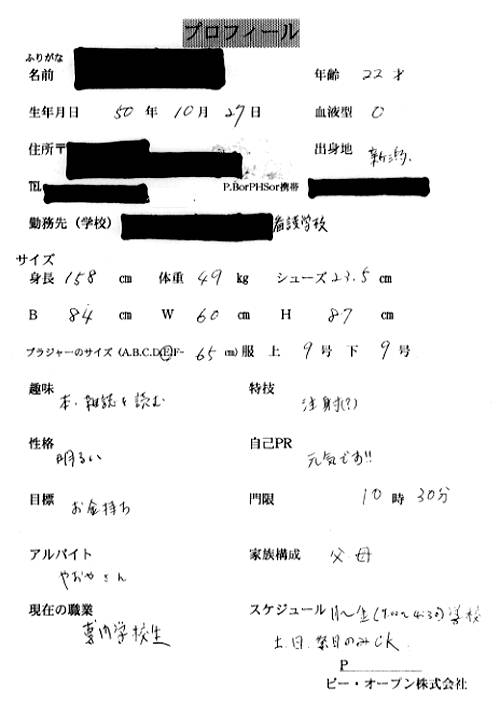 プロフィール
ふりがな
名前
年齢 22 才
生年月日 50 年 10 月 27 日
血液型 O
住所〒
出身地 新潟.
℡
P.BorPHSor携帯
勤務先（学校） 看護学校
サイズ
身長 158 cm 体重 49 kg シューズ 23.5 cm
B 84 cm W 60 cm H 87 cm
ブラジャーのサイズ (A.B.C.D.E.F- 65 cm) 服 上 9 号 下 9 号
趣味 本、雑誌を読む
特技 注射(?)
性格 明るい
自己PR 元気です!!
目標 お金持ち
門限 10 時 30分
アルバイト やおやさん
家族構成 父 母
現在の職業 専門学校生
スケジュール 月〜金 (9:00〜4:30) 学校
土、日、祭日のみOK.
P
ピー・オープン株式会社